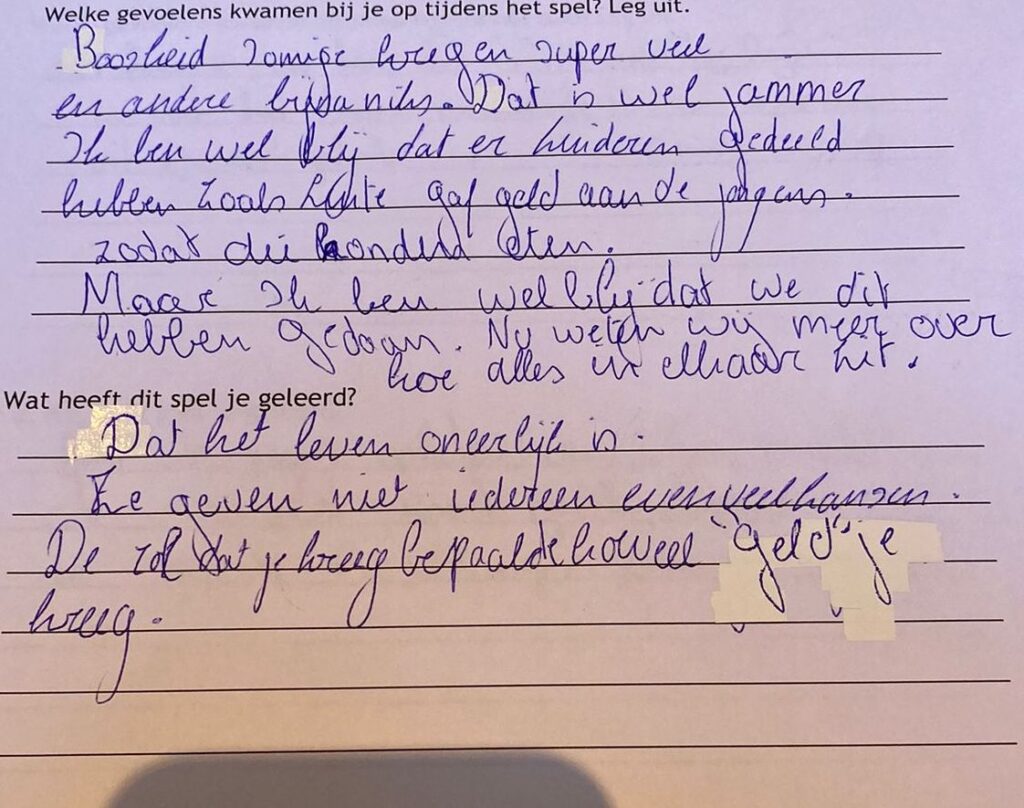 Welke gevoelens kwamen bij je op tijdens het spel? Leg uit.
Boosheid somige kregen super veel
en andere bijna niks. Dat is wel jammer
Ik ben wel blij dat er kinderen gedeeld
hebben zoals gaf geld aan de jongens.
zodat die konden eten.
Maar Ik ben wel blij dat we dit
hebben gedaan. Nu weten wij meer over
hoe alles in elkaar zit.
Wat heeft dit spel je geleerd?
Dat het leven oneerlijk is.
Ze geven niet iedereen evenveel kansen.
De rol dat je kreeg bepaalde hoeveel "geld" je
kreeg.